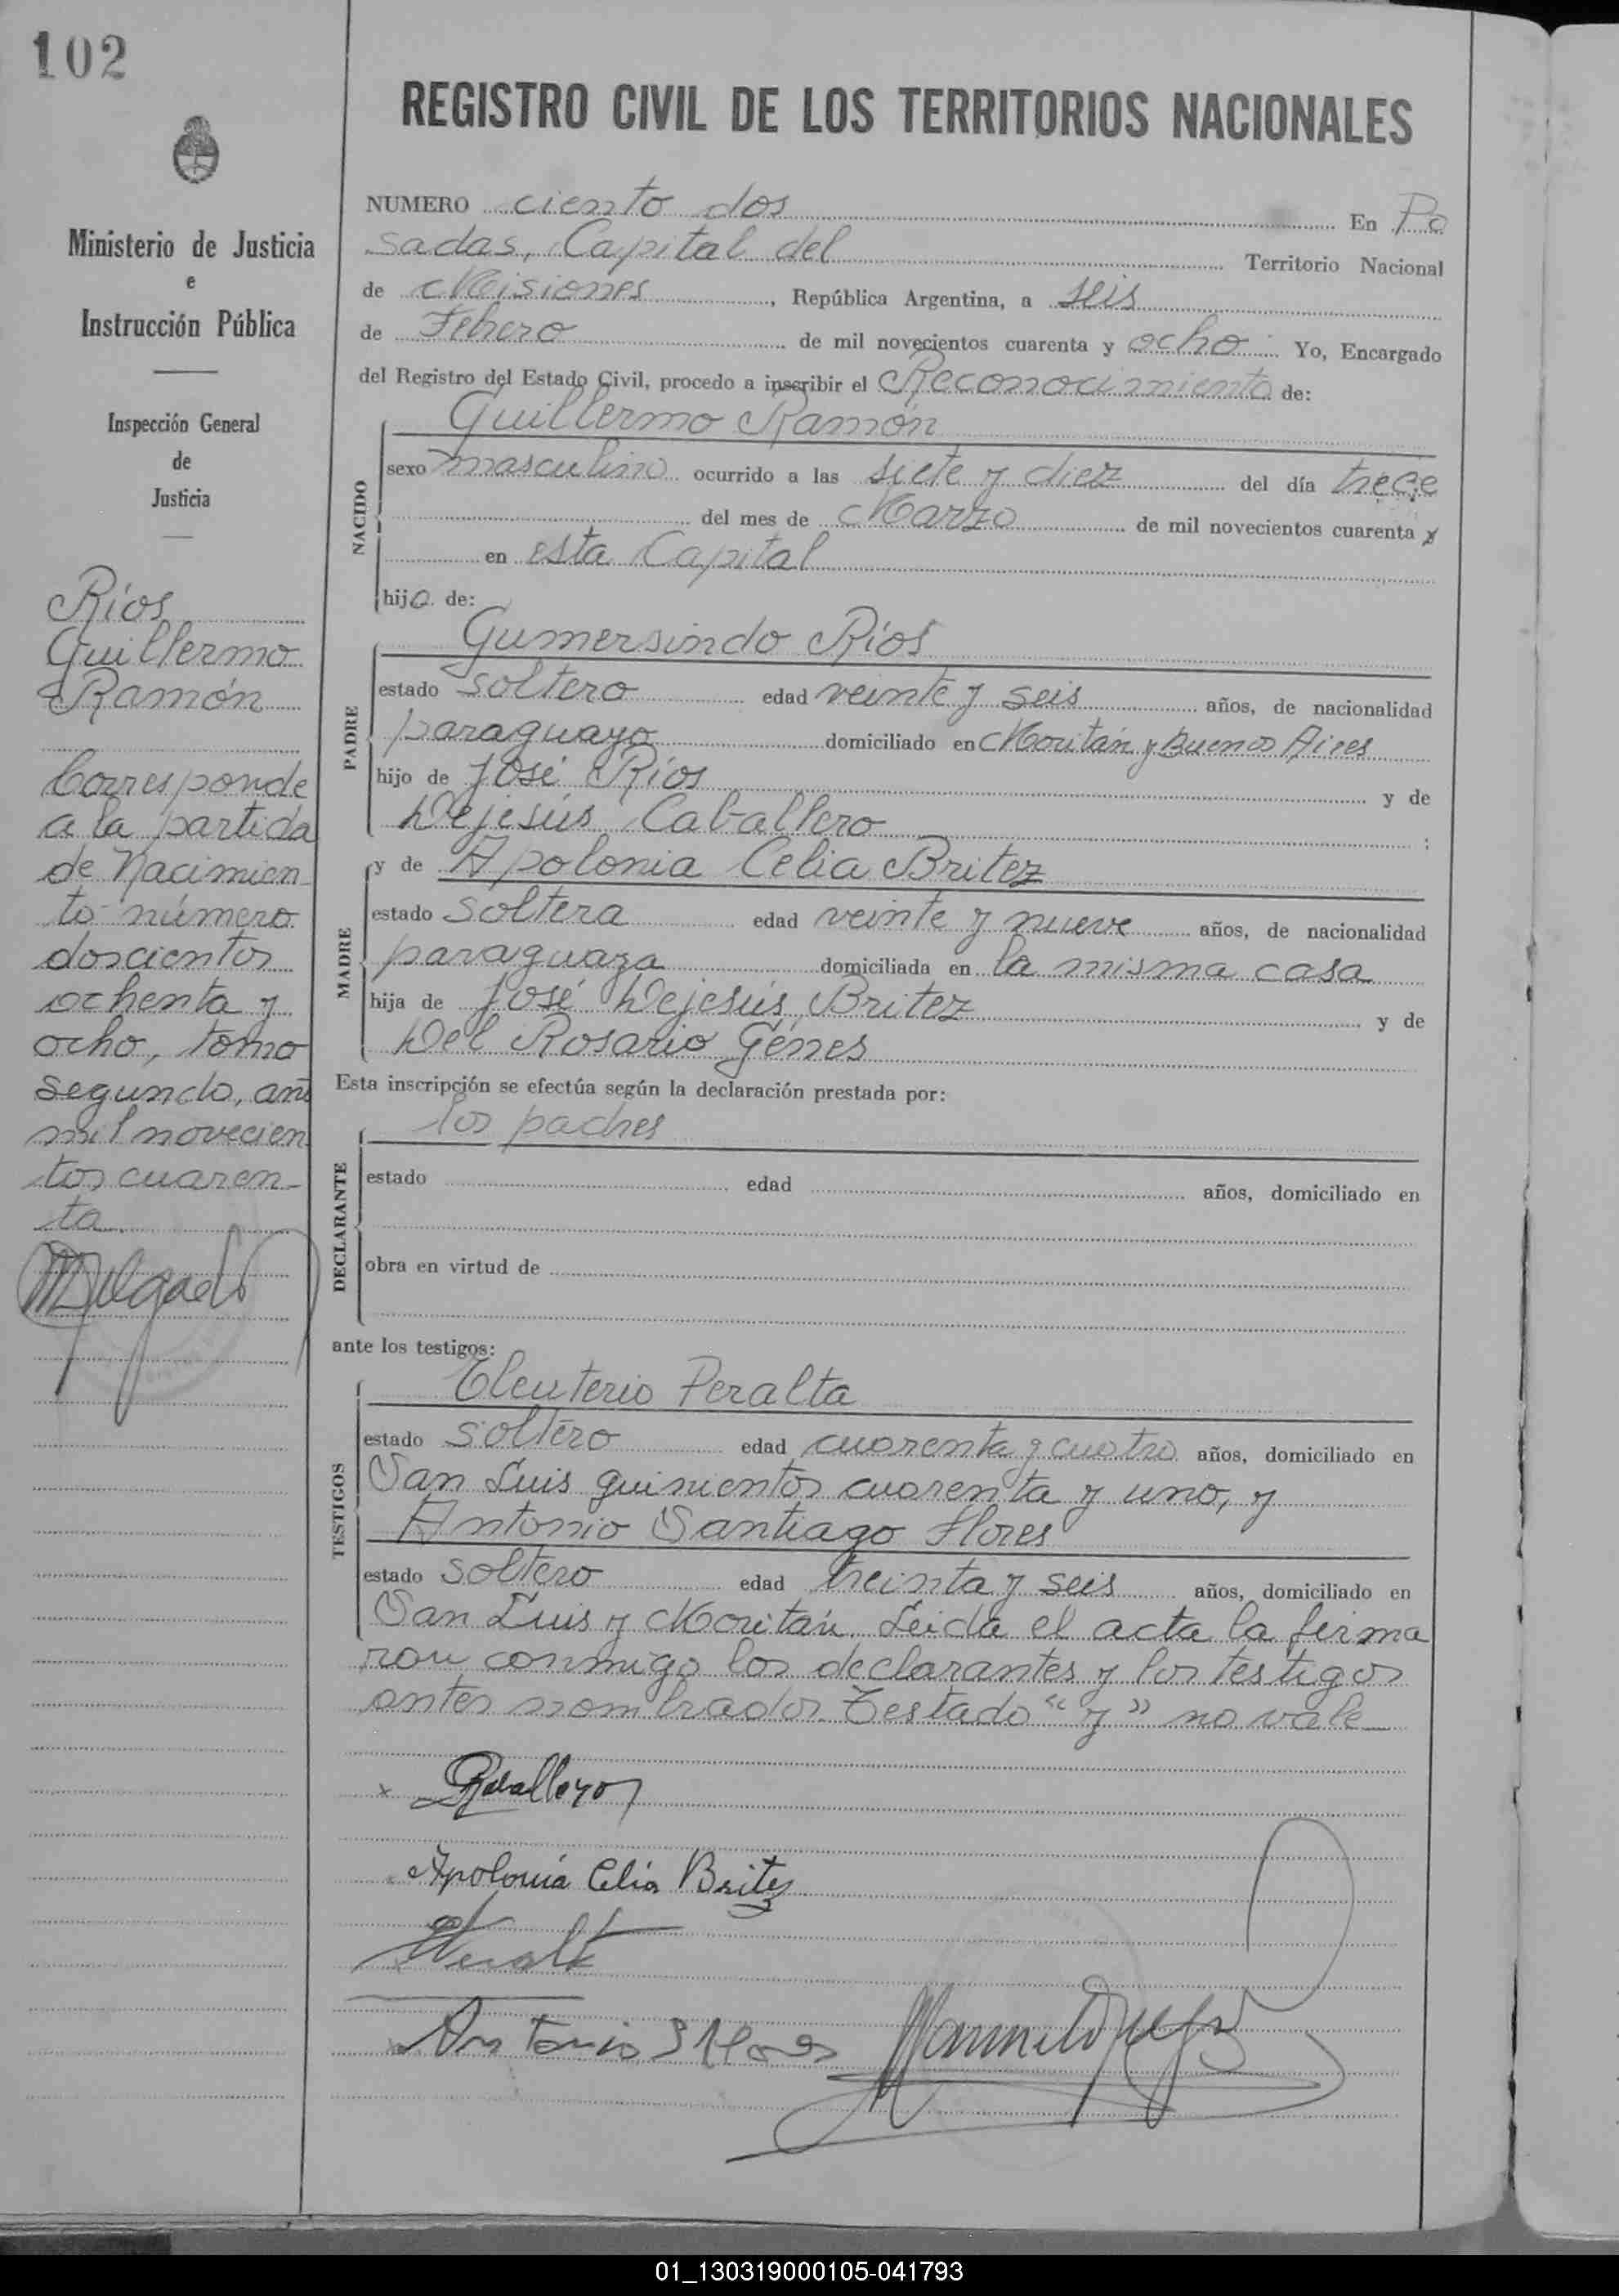 102
Ministerio de Justicia
e
Instrucción Pública
Inspección General
de
Justicia
Ríos
Guillermo
Ramón
Corresponde
a la partida
de Nacimien-
to número
doscientos
ochenta y
ocho, tomo
segundo, año
mil novecien
tos cuaren-
ta.
REGISTRO CIVIL DE LOS TERRITORIOS NACIONALES
NUMERO ciento dos En Po
sadas, Capital del Territorio Nacional
de Misiones, República Argentina, a seis
de Febrero de mil novecientos cuarenta y ocho Yo, Encargado
del Registro del Estado Civil, procedo a inscribir el Reconocimiento de:
NACIDO
Guillermo Ramón
sexo masculino ocurrido a las siete y diez del día trece
del mes de Marzo de mil novecientos cuarenta y
en esta Capital
hijo de:
PADRE
Gumersindo Ríos
estado soltero edad veinte y seis años, de nacionalidad
paraguayo domiciliado en Moritán y Buenos Aires
hijo de José Ríos y de
Dejesús Caballero ;
MADRE
y de Apolonia Celia Britez
estado soltera edad veinte y nueve años, de nacionalidad
paraguaya domiciliada en la misma casa
hija de José Dejesús Britez y de
Del Rosario Génes
Esta inscripción se efectúa según la declaración prestada por:
DECLARANTE
los padres
estado edad años, domiciliado en
obra en virtud de
ante los testigos:
TESTIGOS
Eleuterio Peralta
estado soltero edad cuarenta y cuatro años, domiciliado en
San Luis quinientos cuarenta y uno, y
Antonio Santiago Flores
estado soltero edad treinta y seis años, domiciliado en
San Luis y Moritán. Leida el acta la firma
ron conmigo los declarantes y los testigos
antes nombrados. Testado "y" no vale
Apolonia Celia Britez
Antonio S Flores
01_130319000105-041793